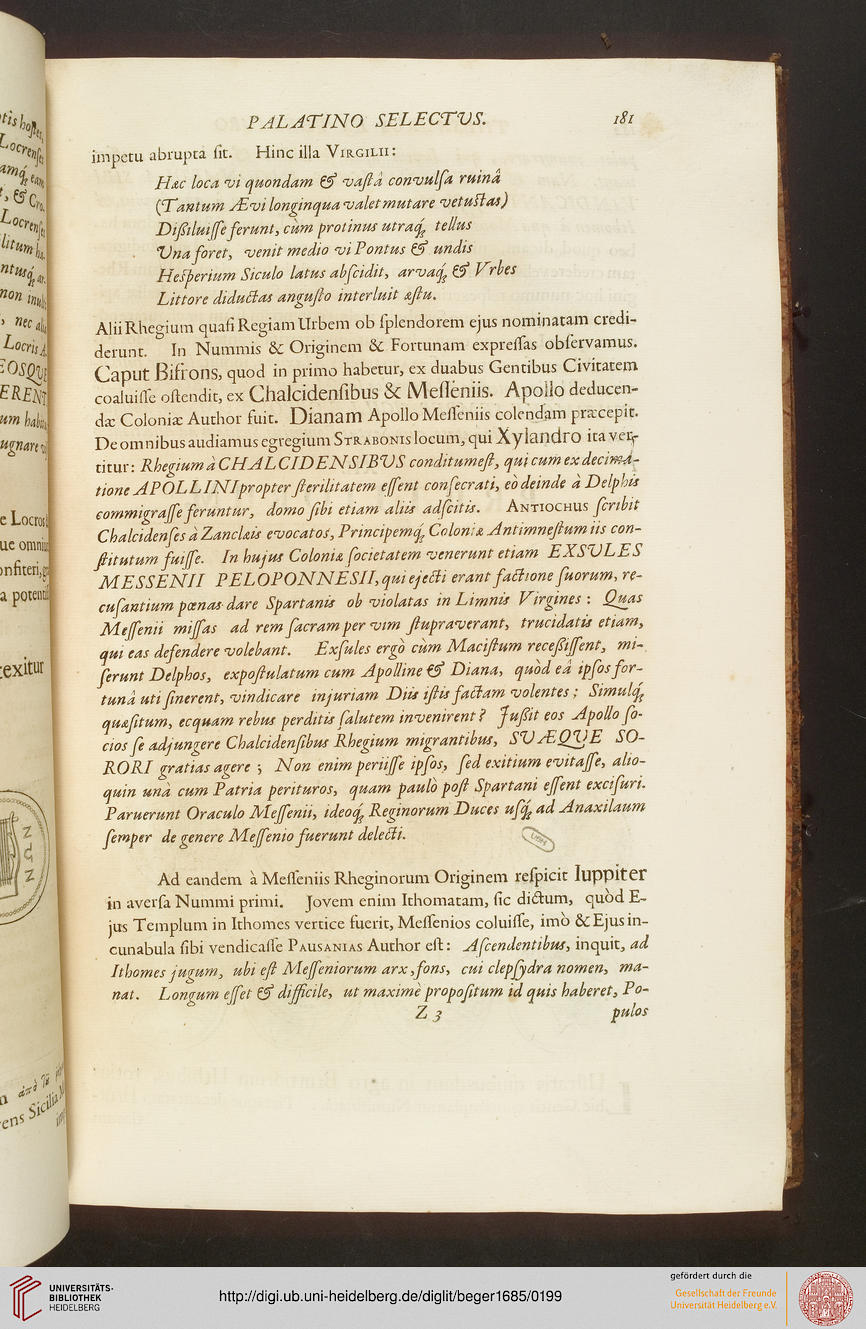 PALATINO SELECTVS. 181
impetu abrupta ſit. Hinc illa VIRGILII:
Hæc loca vi quondam & vaſtâ convulſa ruinâ
(Tantum Ævi longinqua valet mutare vetuſtas)
Dißiluiſſe ferunt, cùm protinus utraq́ꝫ tellus
Vna foret, venit medio vi Pontus & undis
Heſperium Siculo latus abſcidit, arvaq́ꝫ & Vrbes
Littore diductas anguſto interluit æſtu.
Alii Rhegium quaſi Regiam Urbem ob ſplendorem ejus nominatam credi-
derunt. In Nummis & Originem & Fortunam expreſſas obſervamus.
Caput Bifrons, quod in primo habetur, ex duabus Gentibus Civitatem
coaluiſſe oſtendit, ex Chalcidenſibus & Meſſeniis. Apollo deducen-
dæ Coloniæ Author fuit. Dianam Apollo Meſſeniis colendam præcepit.
De omnibus audiamus egregium STRABONIS locum, qui Xylandro ita ver-
titur: Rhegium à CHALCIDENSIBVS conditum eſt, qui cum ex decima-
tione APOLLINI propter ſterilitatem eſſent conſecrati, eò deinde à Delphis
commigraſſe feruntur, domo ſibi etiam aliis adſcitis. ANTIOCHUS ſcribit
Chalcidenſes à Zanclæis evocatos, Principemq́ꝫ Coloniæ Antimneſtum iis con-
ſtitutum fuiſſe. In hujus Coloniæ ſocietatem venerunt etiam EXSVLES
MESSENII PELOPONNESII, qui ejecti erant factione ſuorum, re-
cuſantium pœnas dare Spartanis ob violatas in Limnis Virgines: Quas
Meſſenii miſſas ad rem ſacram per vim ſtupraverant, trucidatis etiam,
qui eas defendere volebant. Exſules ergò cùm Maciſtum receßiſſent, mi-
ſerunt Delphos, expoſtulatum cum Apolline & Diana, quòd eâ ipſos for-
tunâ uti ſinerent, vindicare injuriam Diis iſtis factam volentes; Simulq́ꝫ
quæſitum, ecquam rebus perditis ſalutem invenirent? Jußit eos Apollo ſo-
cios ſe adjungere Chalcidenſibus Rhegium migrantibus, SVÆQUE SO-
RORI gratias agere; Non enim periiſſe ipſos, ſed exitium evitaſſe, alio-
quin unà cum Patria perituros, quam paulò poſt Spartani eſſent exciſuri.
Paruerunt Oraculo Meſſenii, ideoq́ꝫ Reginorum Duces uſq́ꝫ ad Anaxilaum
ſemper de genere Meſſenio fuerunt delecti.
UBH
Ad eandem à Meſſeniis Rheginorum Originem reſpicit Iuppiter
in averſa Nummi primi. Jovem enim Ithomatam, ſic dictum, quòd E-
jus Templum in Ithomes vertice fuerit, Meſſenios coluiſſe, imò & Ejus in-
cunabula ſibi vendicaſſe PAUSANIAS Author eſt: Aſcendentibus, inquit, ad
Ithomes jugum, ubi eſt Meſſeniorum arx, fons, cui clepſydra nomen, ma-
nat. Longum eſſet & difficile, ut maximè propoſitum id quis haberet, Po-
Z 3 pulos
UNIVERSITÄTS-
BIBLIOTHEK
HEIDELBERG
http://digi.ub.uni-heidelberg.de/diglit/beger1685/0199
gefördert durch die
Gesellschaft der Freunde
Universität Heidelberg e.V.